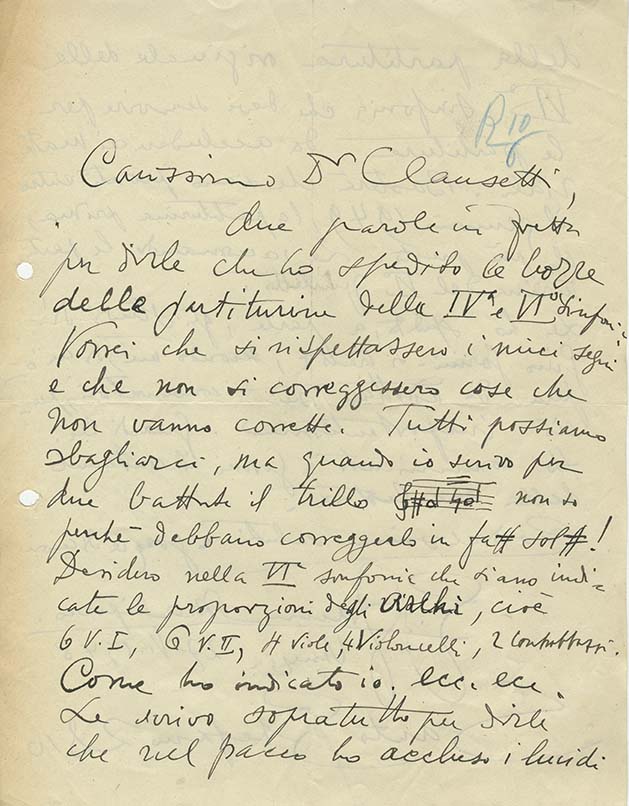 R 10/6
Carissimo Dr Clausetti,
due parole in fretta
per dirle che ho spedito le bozze
delle partiturine della IVa e VIa Sinfonia.
Vorrei che si rispettassero i miei segni
e che non si correggessero cose che
non vanno corrette. Tutti possiamo
sbagliarci, ma quando io scrivo per
due battute il trillo non so
perché debbano correggerlo in fa# sol#!
Desidero nella VIa sinfonia che siano indi-
cate le proporzioni degli Archi, cioè
6 V. I, 6 V. II, 4 viole, 4 Violoncelli, 2 contrabbassi.
Come ho indicato io. ecc. ecc.
Le scrivo sopratutto per dirle
che nel pacco ho accluso i lucidi